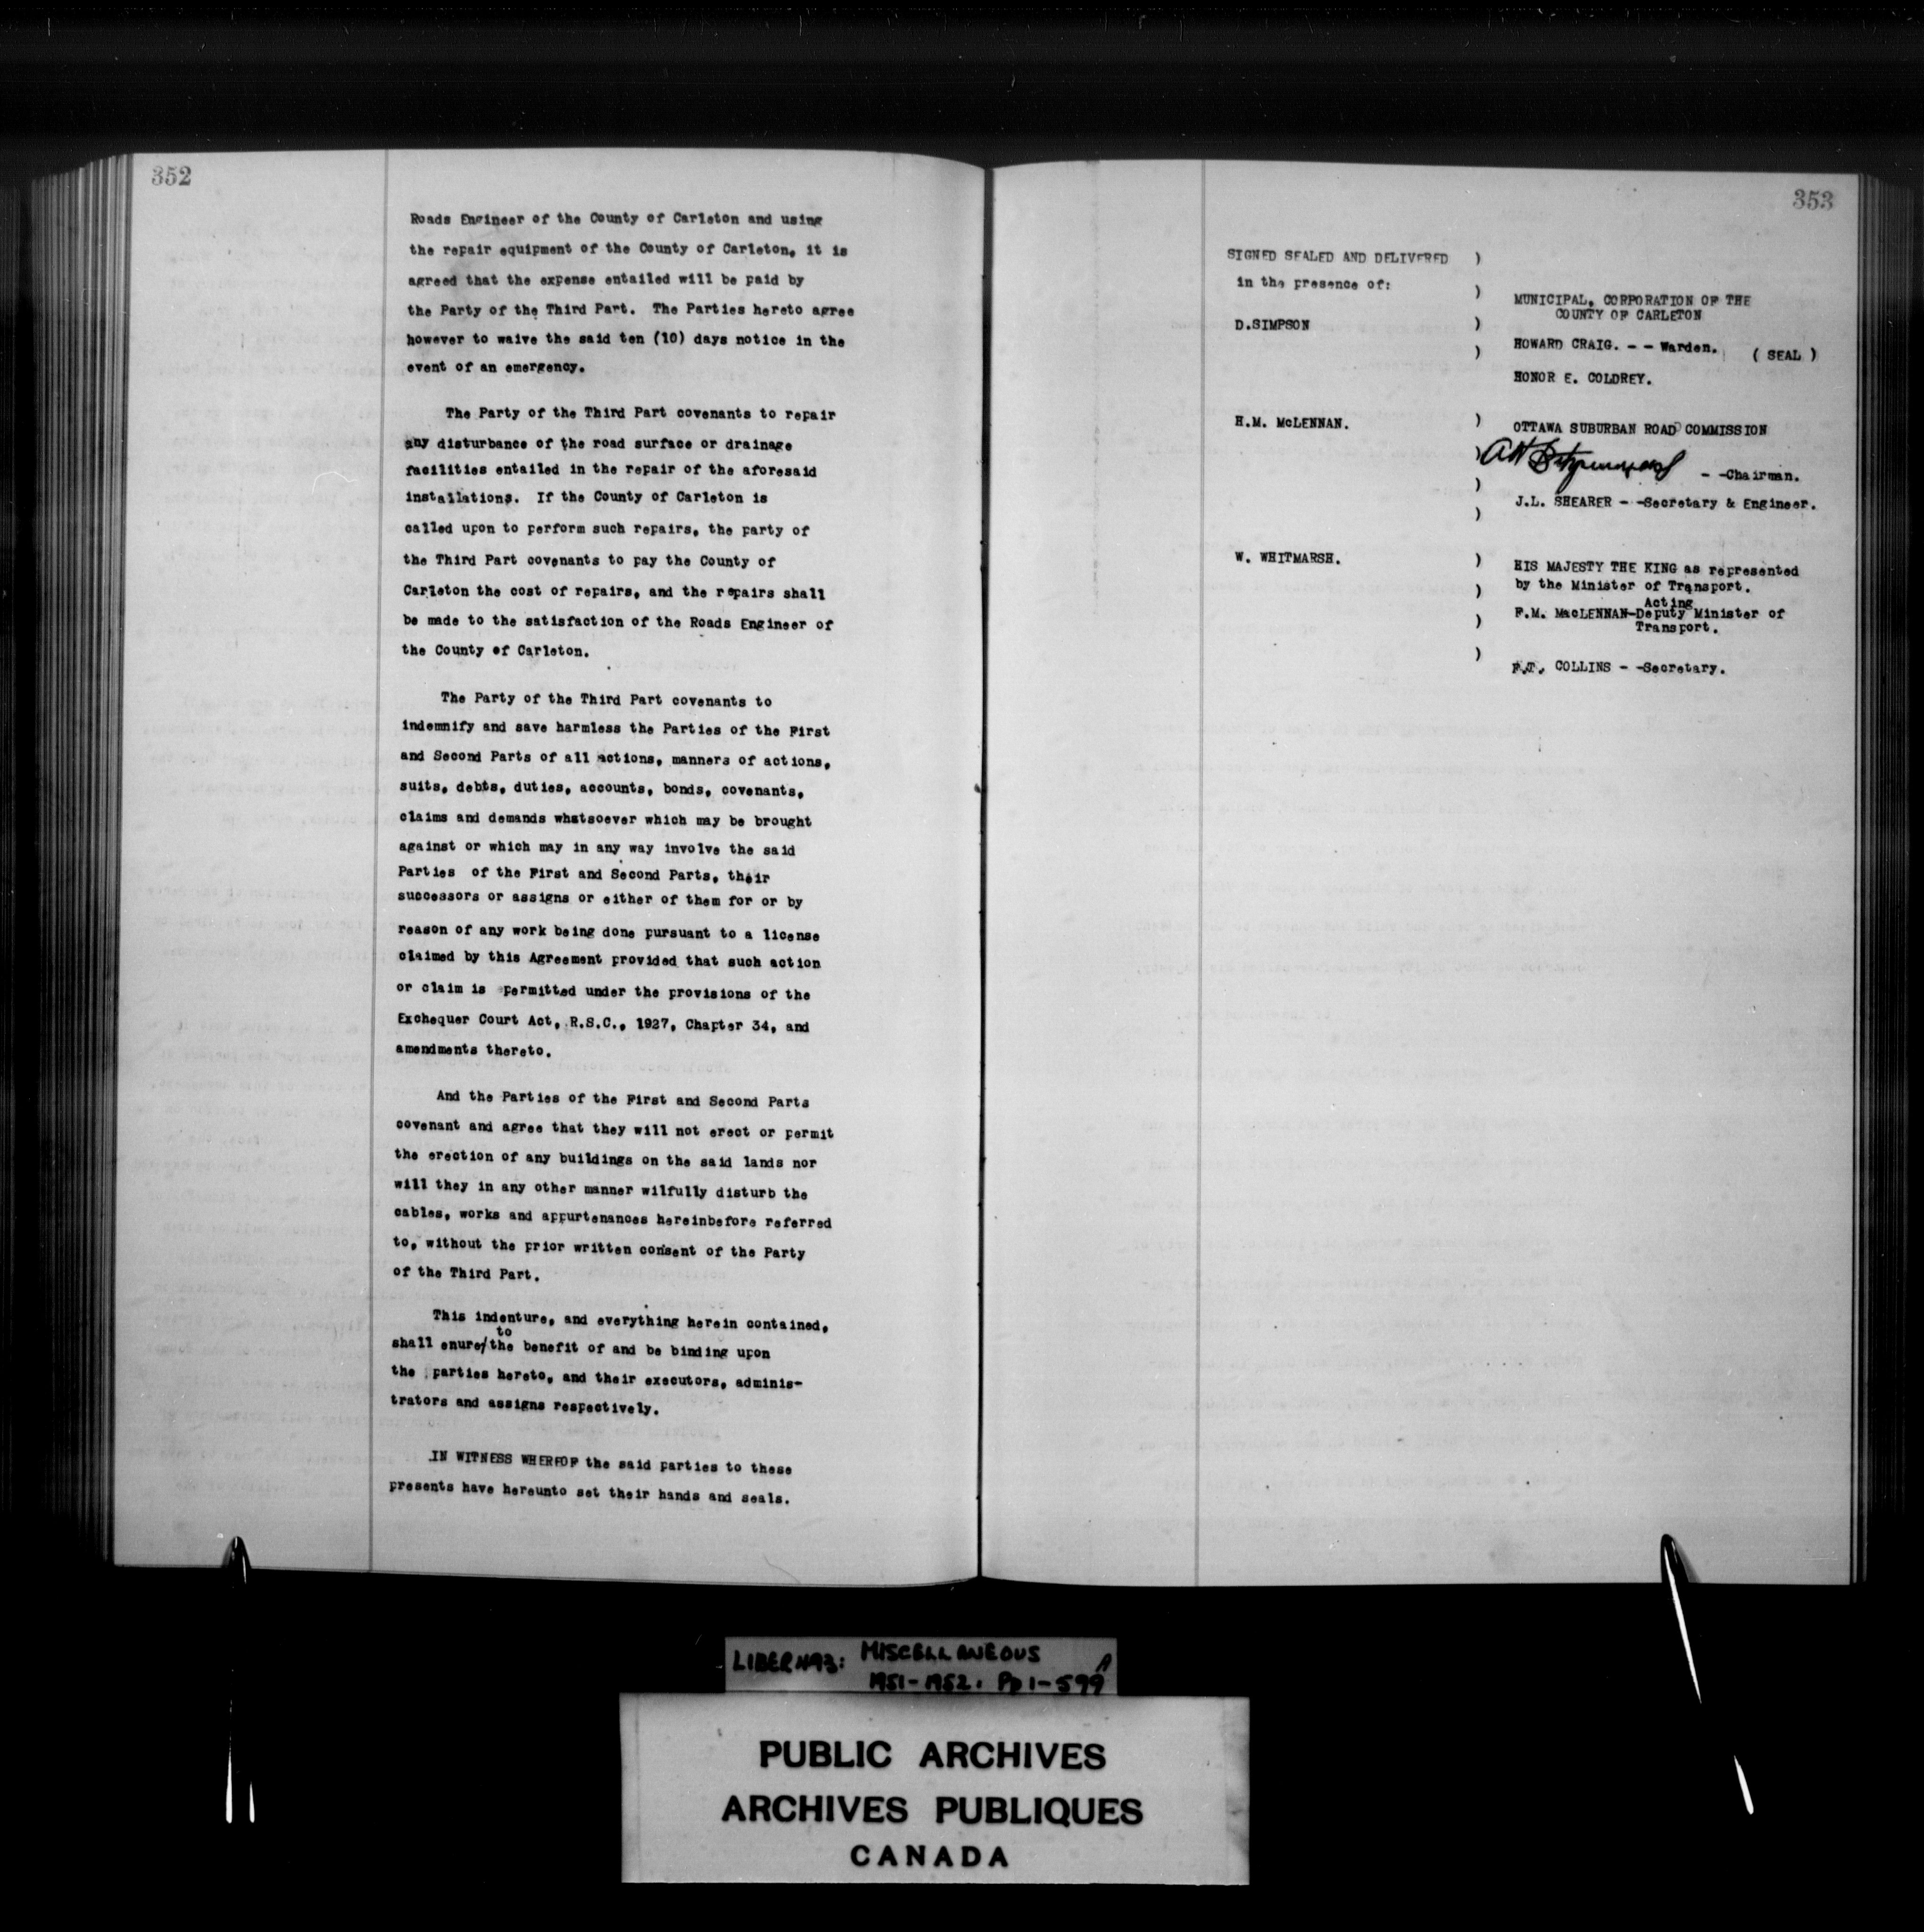 352
Roads Engineer of the County of Carleton and using
the repair equipment of the County of Carleton, it is
agreed that the expense entailed will be paid by
the Party of the Third Part. The Parties hereto agree
however to waive the said ten (10) days notice in the
event of an emergency.
The Party of the Third Part covenants to repair
any disturbance of the road surface or drainage
facilities entailed in the repair of the aforesaid
installations. If the County of Carleton is
called upon to perform such repairs, the party of
the Third Part covenants to pay the County of
Carleton the cost of repairs, and the repairs shall
be made to the satisfaction of the Roads Engineer of
the County of Carleton.
The Party of the Third Part covenants to
indemnify and save harmless the Parties of the First
and Second Parts of all actions, manners of actions,
suits, debts, duties, accounts, bonds, covenants,
claims and demands whatsoever which may be brought
against or which may in any way involve the said
Parties of the First and Second Parts, their
successors or assigns or either of them for or by
reason of any work being done pursuant to a license
claimed by this Agreement provided that such action
or claim is permitted under the provisions of the
Exchequer Court Act, R.S.C., 1927, Chapter 34, and
amendments thereto.
And the Parties of the First and Second Parts
covenant and agree that they will not erect or permit
the erection of any buildings on the said lands nor
will they in any other manner wilfully disturb the
cables, works and appurtenances hereinbefore referred
to, without the prior written consent of the Party
of the Third Part.
This indenture, and everything herein contained,
to
shall enure/the benefit of and be binding upon
the parties hereto, and their executors, adminis-
trators and assigns respectively.
IN WITNESS WHEREOF the said parties to these
presents have hereunto set their hands and seals.
353
SIGNED SEALED AND DELIVERED )
in the presence of: )
MUNICIPAL, CORPORATION OF THE
COUNTY OF CARLETON
D.SIMPSON )
HOWARD CRAIG. - - Warden. ( SEAL )
)
HONOR E. COLDREY.
H.M. McLENNAN. )
OTTAWA SUBURBAN ROAD COMMISSION
)
- -Chairman.
)
J.L. SHEARER - -Secretary & Engineer.
)
W. WHITMARSH. )
HIS MAJESTY THE KING as represented
by the Minister of Transport.
)
Acting
F.M. MacLENNAN-Deputy Minister of
) Transport.
)
F.T. COLLINS - -Secretary.
LIBER 493: MISCELLANEOUS
1951-1952. Pp 1-599 A
PUBLIC ARCHIVES
ARCHIVES PUBLIQUES
CANADA